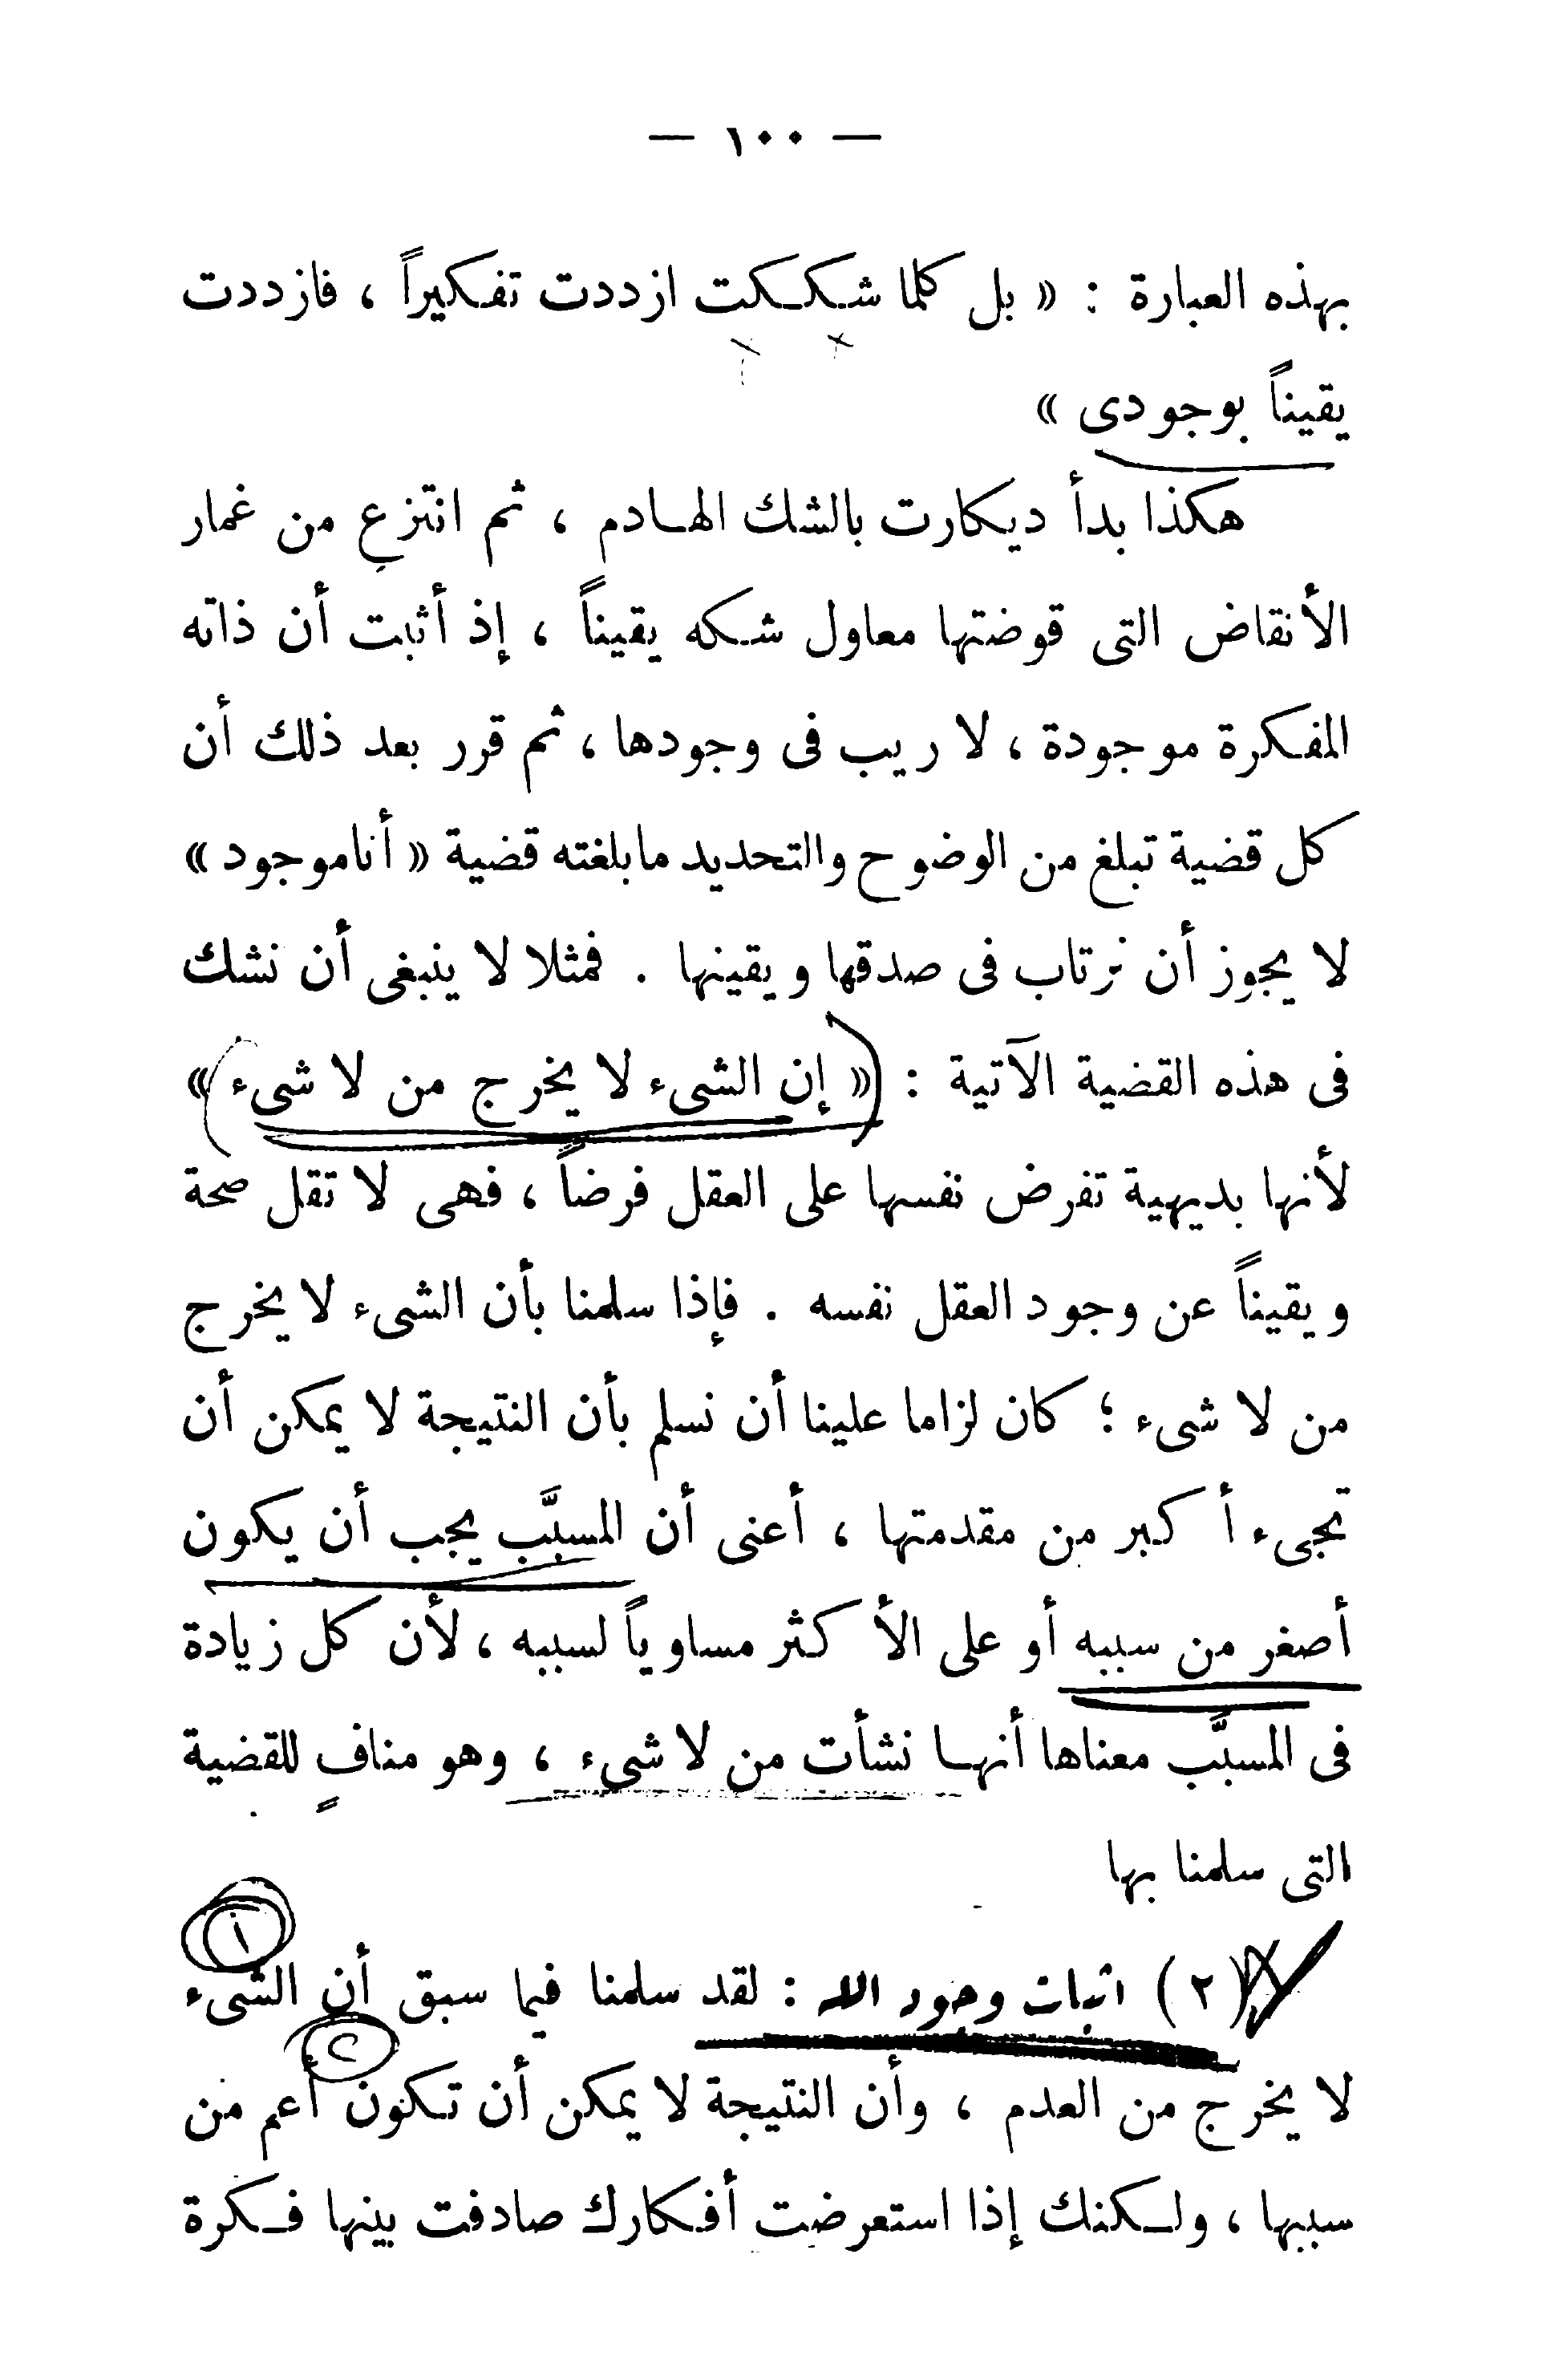 — ١٠٠ —
بهذه العبارة : « بل كلما شككت ازددت تفكيراً ، فازددت
يقيناً بوجودى »
هكذا بدأ ديكارت بالشك الهادم ، ثم انتزع من غمار
الأنقاض التى قوضتها معاول شكه يقيناً ، إذ أثبت أن ذاته
المفكرة موجودة ، لا ريب فى وجودها ، ثم قرر بعد ذلك أن
كل قضية تبلغ من الوضوح والتحديد ما بلغته قضية « أنا موجود »
لا يجوز أن نرتاب فى صدقها ويقينها . فمثلا لا ينبغى أن نشك
فى هذه القضية الآتية : « إن الشىء لا يخرج من لا شىء »
لأنها بديهية تفرض نفسها على العقل فرضاً ، فهى لا تقل صحة
ويقيناً عن وجود العقل نفسه . فإذا سلمنا بأن الشىء لا يخرج
من لا شىء ؛ كان لزاما علينا أن نسلم بأن النتيجة لا يمكن أن
تجىء أكبر من مقدمتها ، أعنى أن المسبَّب يجب أن يكون
أصغر من سببه أو على الأكثر مساوياً لسببه ، لأن كل زيادة
فى المسبَّب معناها أنها نشأت من لا شىء ، وهو منافٍ للقضية
التى سلمنا بها
١
(٢) اثبات وجود الله : لقد سلمنا فيما سبق أن الشىء
٢
لا يخرج من العدم ، وأن النتيجة لا يمكن أن تكون أعم من
سببها ، ولكنك إذا استعرضت أفكارك صادفت بينها فكرة